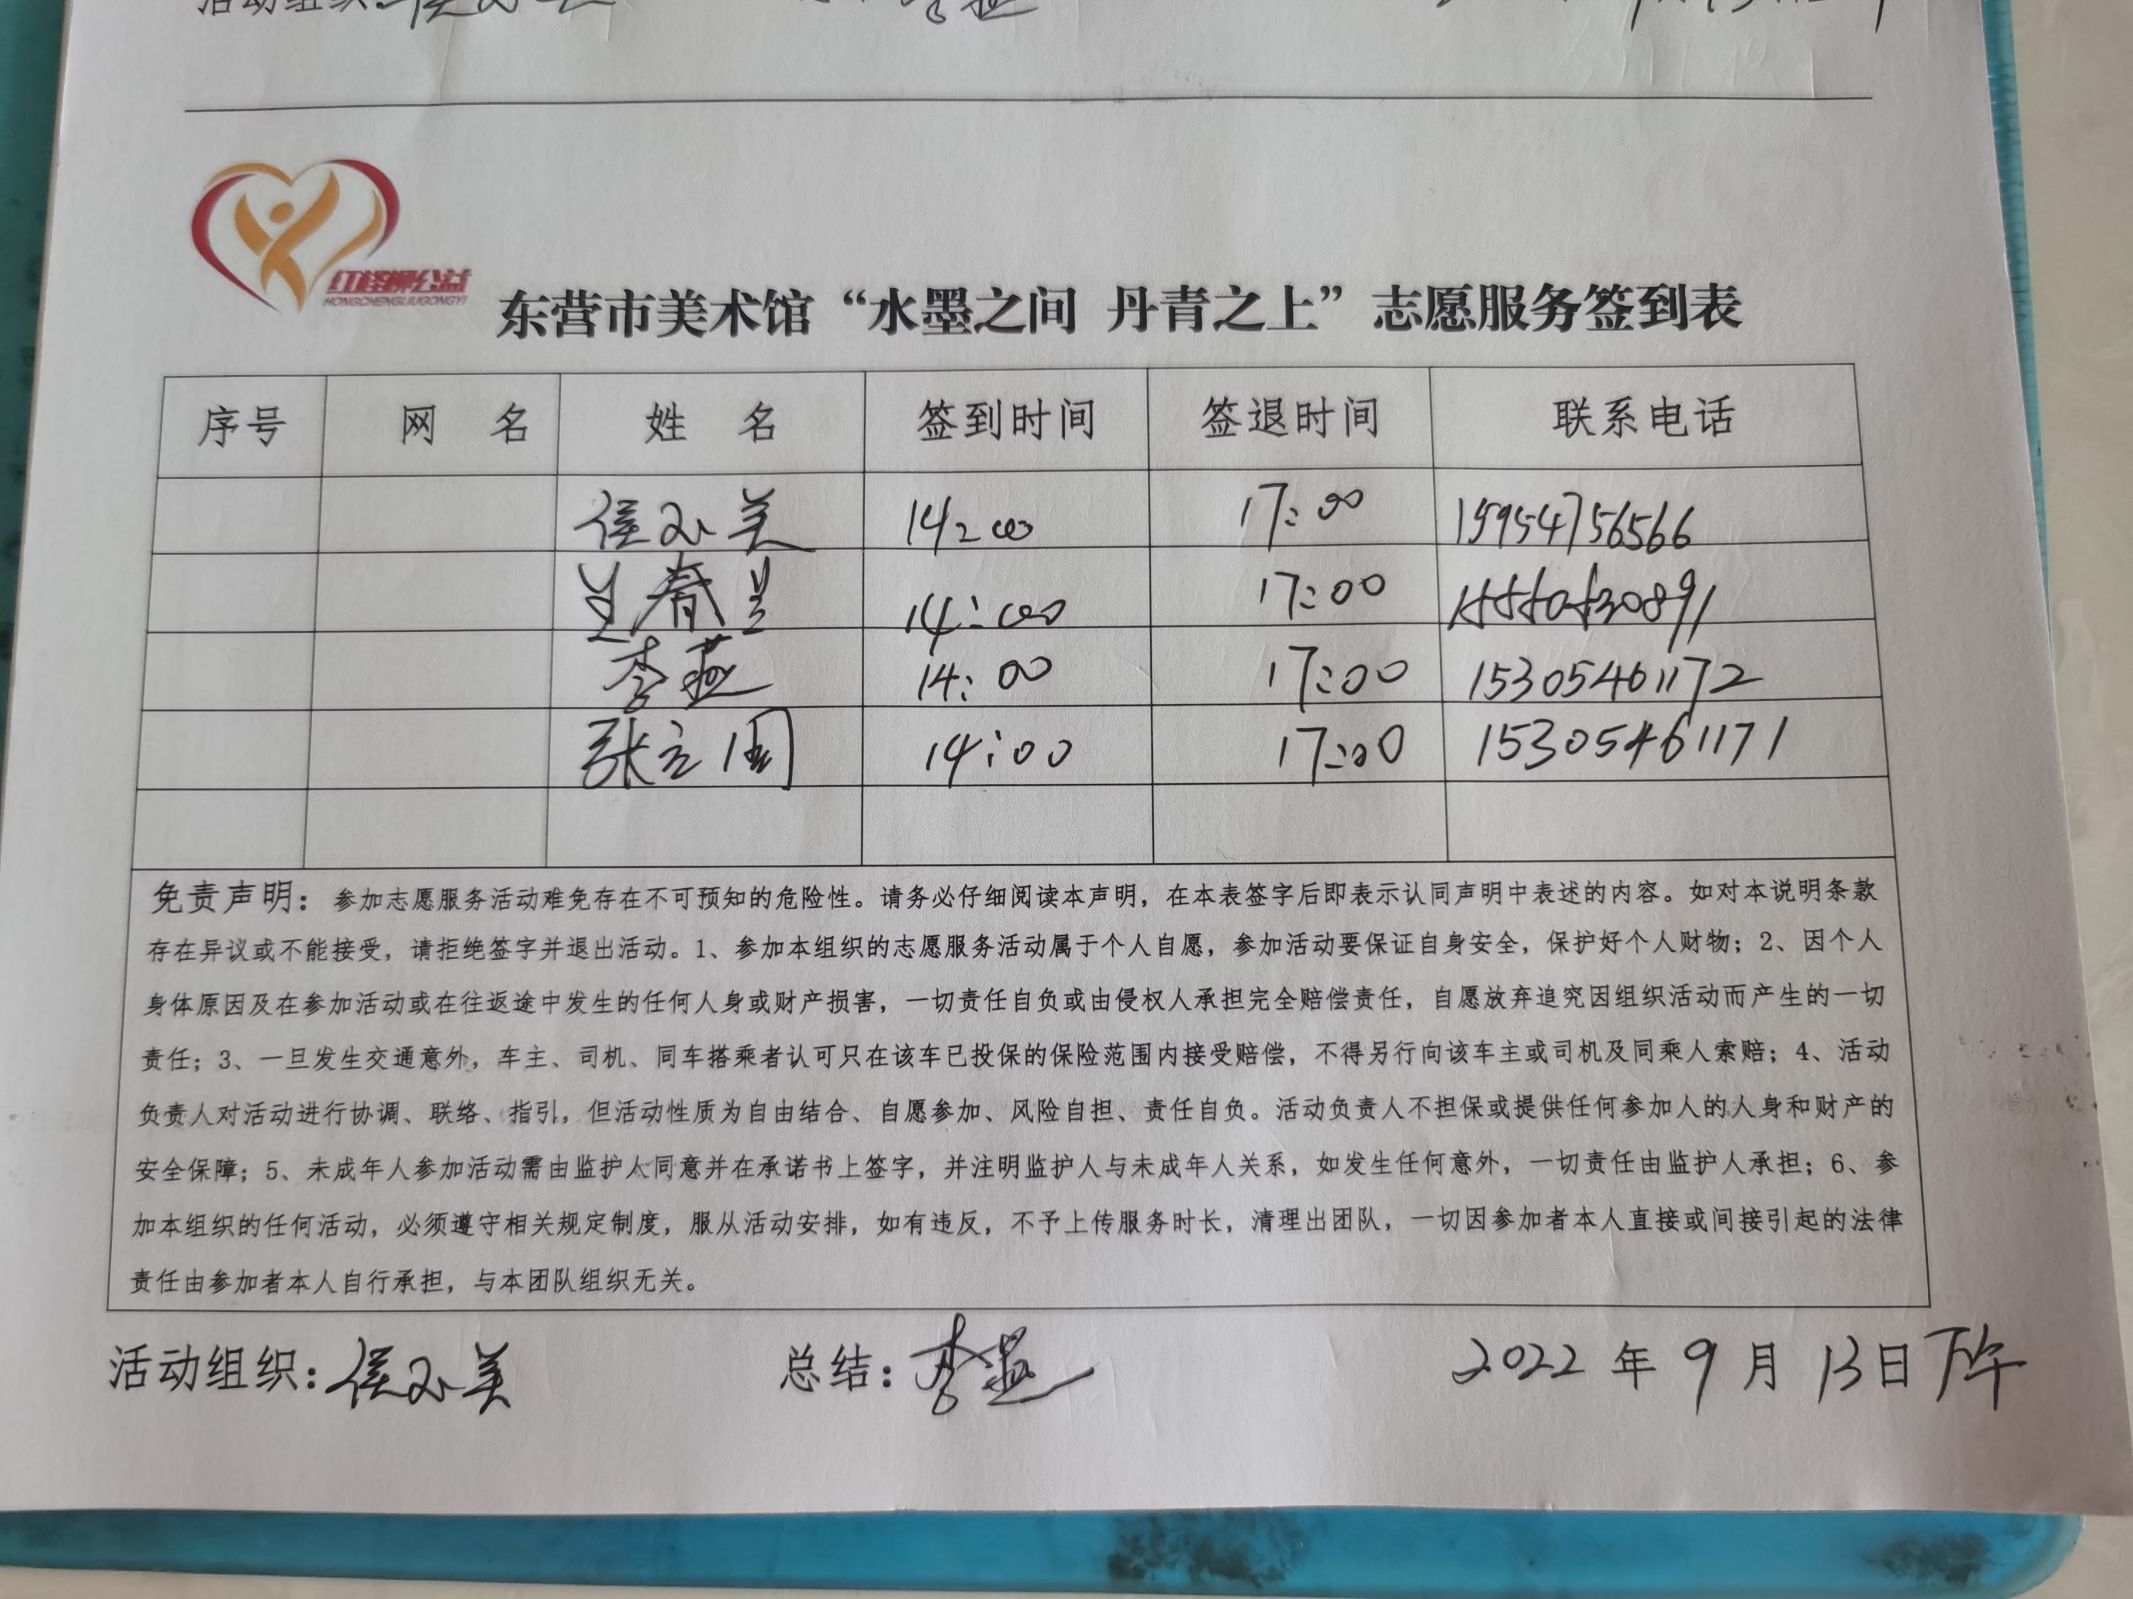 活动组织:侯小美 李燕
红柽柳公益
HONGCHENGLIUGONGYI
东营市美术馆“水墨之间 丹青之上”志愿服务签到表
序号 网 名 姓 名 签到时间 签退时间 联系电话
侯小美 14:00 17:00 15954756566
14:00 17:00 15550530891
李燕 14:00 17:00 15305461172
张立国 14:00 17:00 15305461171
免责声明:参加志愿服务活动难免存在不可预知的危险性。请务必仔细阅读本声明,在本表签字后即表示认同声明中表述的内容。如对本说明条款
存在异议或不能接受,请拒绝签字并退出活动。1、参加本组织的志愿服务活动属于个人自愿,参加活动要保证自身安全,保护好个人财物;2、因个人
身体原因及在参加活动或在往返途中发生的任何人身或财产损害,一切责任自负或由侵权人承担完全赔偿责任,自愿放弃追究因组织活动而产生的一切
责任;3、一旦发生交通意外,车主、司机、同车搭乘者认可只在该车已投保的保险范围内接受赔偿,不得另行向该车主或司机及同乘人索赔;4、活动
负责人对活动进行协调、联络、指引,但活动性质为自由结合、自愿参加、风险自担、责任自负。活动负责人不担保或提供任何参加人的人身和财产的
安全保障;5、未成年人参加活动需由监护人同意并在承诺书上签字,并注明监护人与未成年人关系,如发生任何意外,一切责任由监护人承担;6、参
加本组织的任何活动,必须遵守相关规定制度,服从活动安排,如有违反,不予上传服务时长,清理出团队,一切因参加者本人直接或间接引起的法律
责任由参加者本人自行承担,与本团队组织无关。
活动组织:侯小美 总结:李燕 2022年9月13日下午